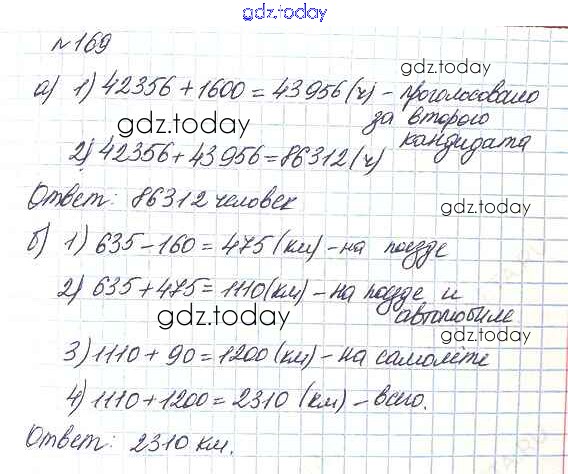 gdz.today
№169
gdz.today
а) 1) 42356 + 1600 = 43956 (ч) - проголосовано
за второго
gdz.today
кандидата
2) 42356 + 43956 = 86312 (ч)
Ответ: 86312 человек
gdz.today
б) 1) 635 - 160 = 475 (км) - на поезде
2) 635 + 475 = 1110 (км) - на поезде и
автомобиле
gdz.today
gdz.today
3) 1110 + 90 = 1200 (км) - на самолёте
4) 1110 + 1200 = 2310 (км) - всего.
Ответ: 2310 км.